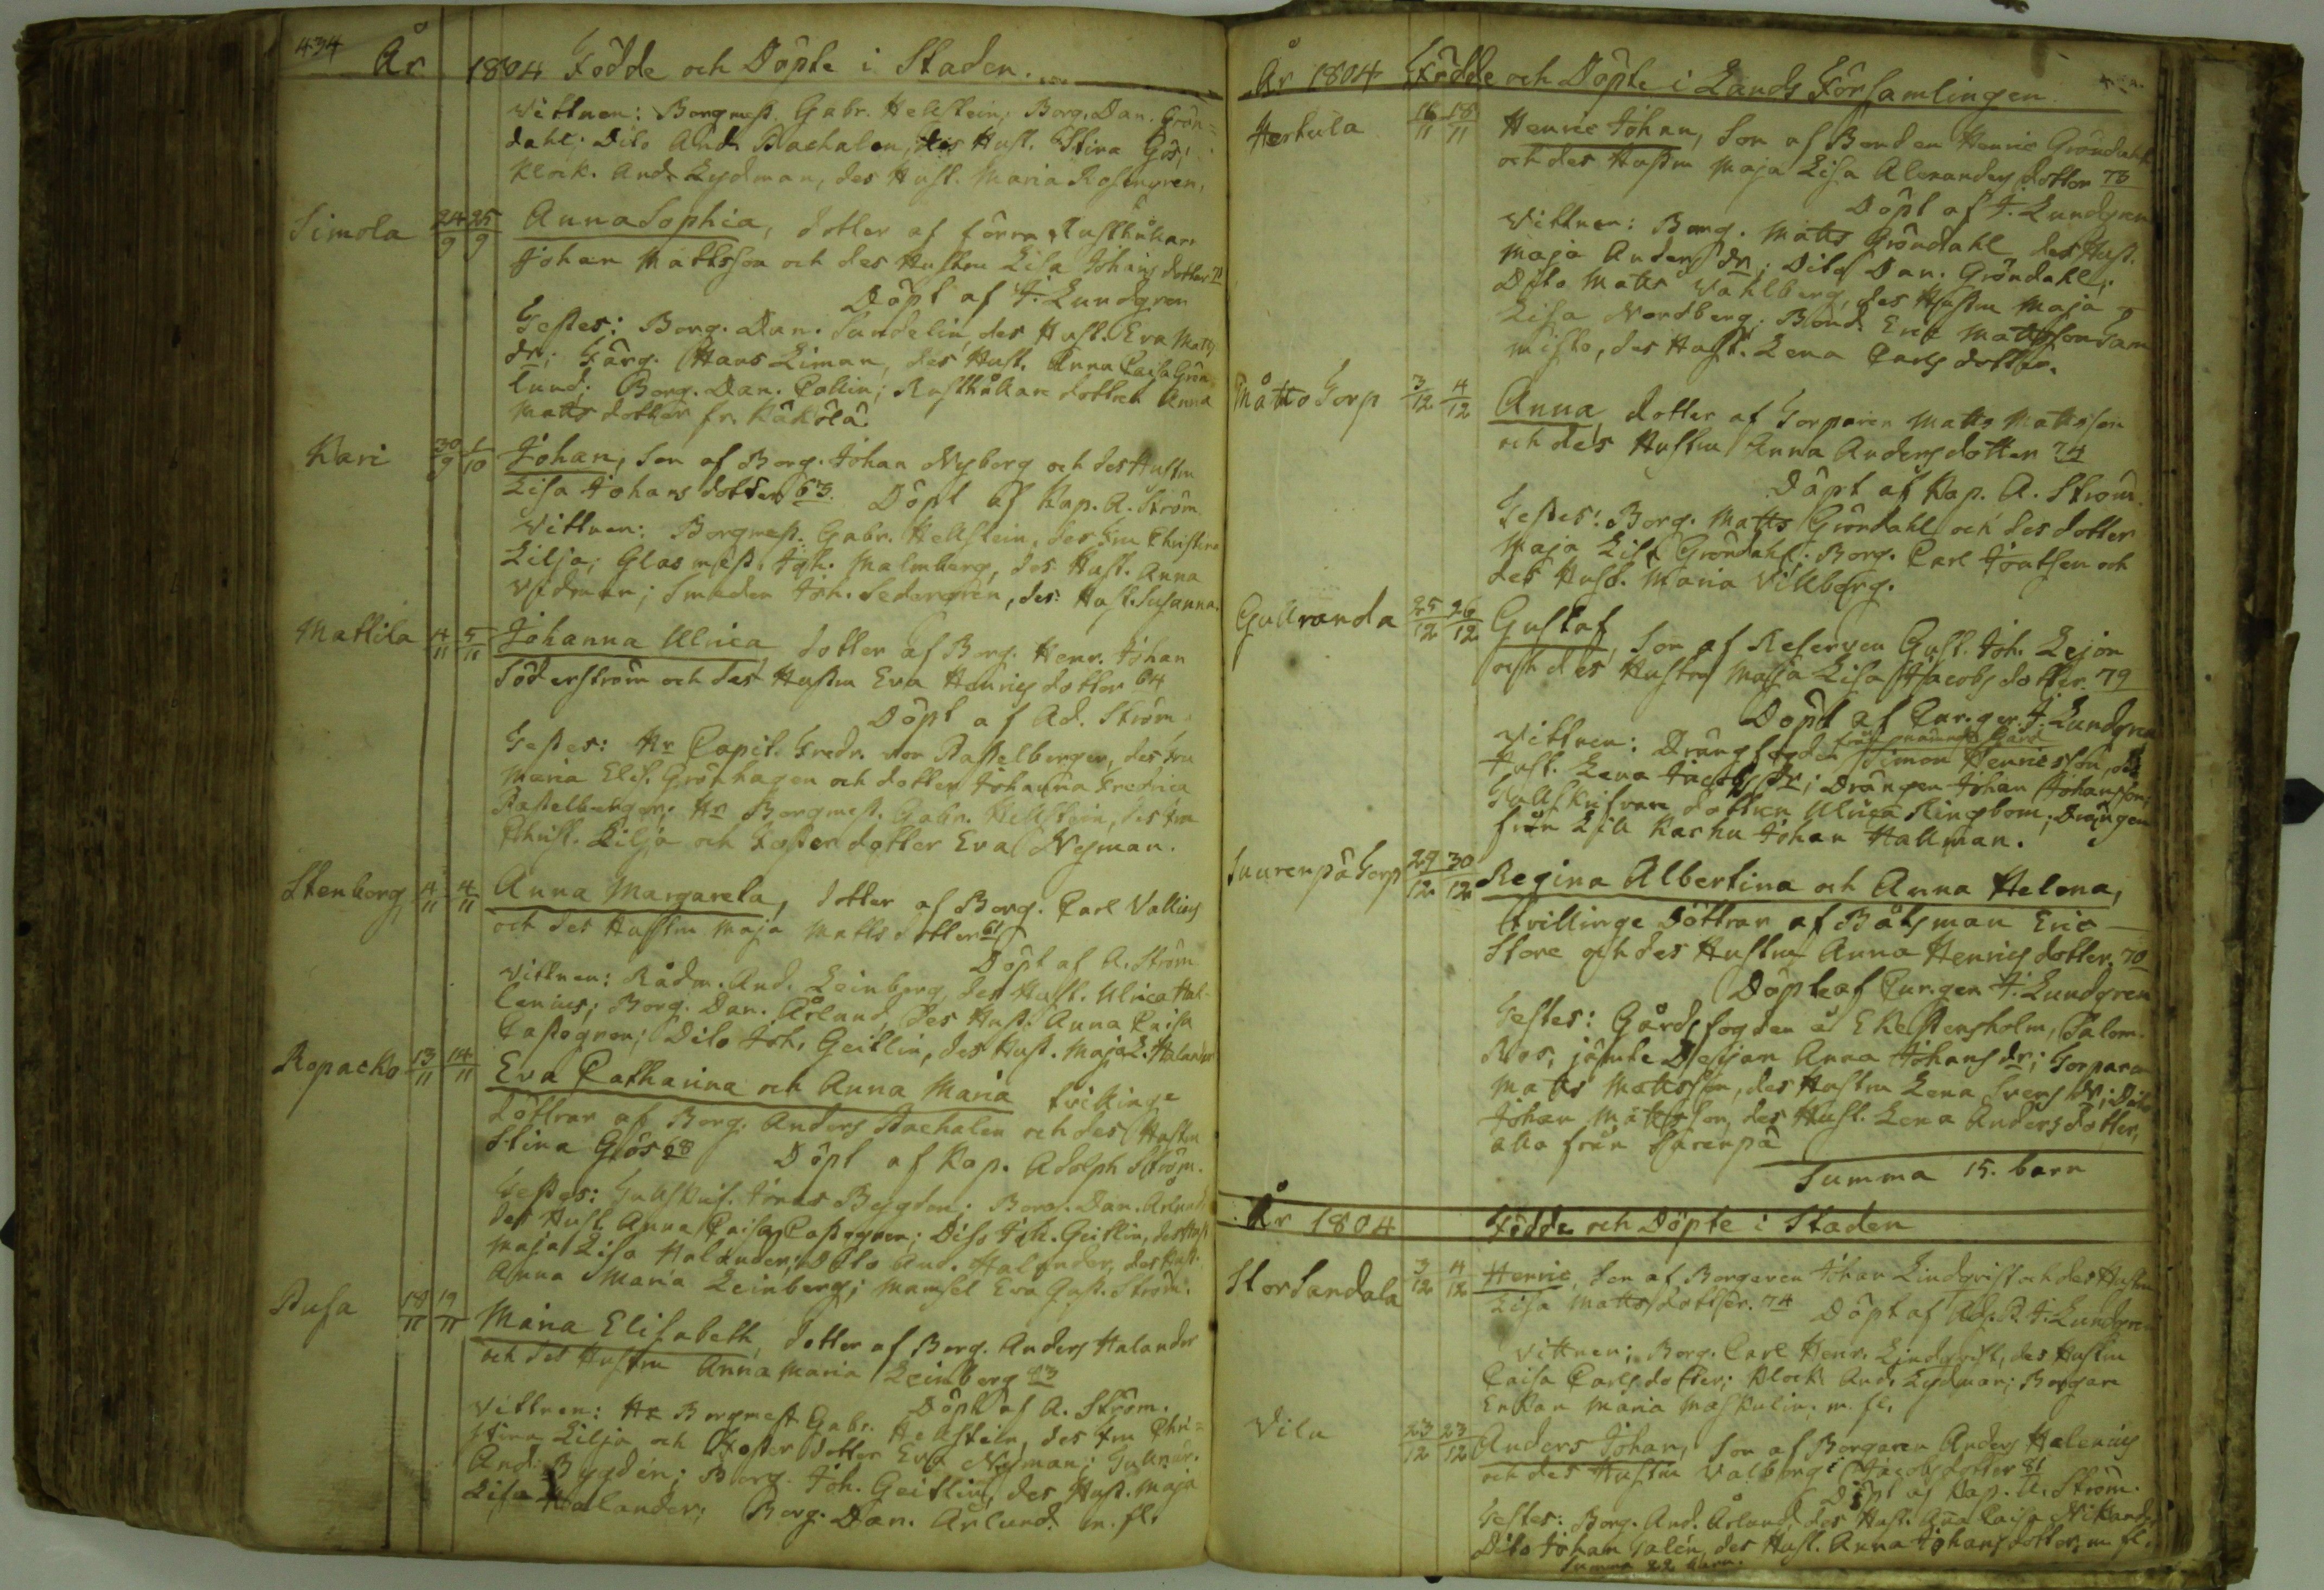 434
År 1804 Födde och Döpte i Staden.
Vittnen: Borgmest. Gabr. Hellstein, Borg. Dan. Grön=
dahl; Dito And. Rachalen, des Hust. Stina Gös;
Klock. And. Lydman, des Hust. Maria
Simola 24/9 25/9 Anna Sophia, dotter af förra Rusthållare
Johan Mattsson och des Hustru Lisa Johansdotter
Döpt af J. Lundgren
Testes: Borg. Dan. Sundelin, des Hust. Eva Matts
dr; Färg. Hans Liman, des Hust. Anna Caisa Grön
lund; Borg. Dan. Collin; Rusthållare dottren Anna
Matts dotter fr. Kåkölä.
Kari 30/9 1/10 Johan, Son af Borg. Johan Nyberg och des Hustru
Lisa Johans dotter 63. Döpt af Kap. A. Ström.
Vittnen: Borgmest. Gabr. Hellstein, des Fru Christina
Lilja; Glasmest. Joh. Malmberg, des Hust. Anna
Vidman; Smeden Joh. Sedergren, des Hust. Susanna.
Mattila 4/11 5/11 Johanna Ulrica dotter af Borg. Henr. Johan
Söderström och des Hustru Eva Henrics dotter 64
Döpt af Ad. Ström.
Testes: Hr Capit. Fredr. von Basselberger, des Fru
Maria Elis. Grönhagen och dotter Johanna Fredrica
Basselberger. Hr Borgmest. Gabr. Hellstein, des Fru
Christ. Lilja och Fosterdotter Eva Nyman.
Stenborg 4/11 4/11 Anna Margareta, dotter af Borg. Carl Vallius
och des Hustru Maja Matts dotter 61
Döpt af A. Ström
Vittnen: Rådm. And. Leinberg, des Hust. Ulrica Hal-
lenius; Borg. Dan. Årlund, des Hust. Anna Caisa
Castegren; Dito Joh. Geitlin, des Hust. Maja L. Halander
Ropacko 13/11 14/11 Eva Catharina och Anna Maria tvillinge
döttrar af Borg. Anders Rachalen och des Hustru
Stina Gös 68 Döpt af Kap. Adolph Ström.
Testes: Gullsmf. Jonas Bygden; Borg. Dan. Årlund
des Hust. Anna Caisa Castegren; Dito Joh. Geitlin, des Hust
Maja Lisa Halander; Dito And. Halander, des Hust.
Anna Maria Leinberg; Mamsel Eva Gust. Ström.
Pusa 18/11 19/11 Maria Elisabeth, dotter af Borg. Anders Halander
och des Hustru Anna Maria Leinberg 83
Döpt af A. Ström.
Vittnen: Hr Borgmest Gabr. Hellstein, des Fru Chri=
stina Lilja och Foster dotter Eva Nyman;
And. Bygdén; Borg. Joh. Geitlin, des Hust. Maja
Lisa Halander; Borg. Dan. Årlund m. fl.
År 1804 Födde och Döpte i Lands Församlingen
Hertula 16/11 18/11 Henric Johan, Son af Bonden Henric Gröndahl
och des Hustru Maja Lisa Alexanders dotter 73
Döpt af J. Lundgren
Vittnen: Borg. Matts Gröndahl, des Hust.
Maja Anders dr; Dito Dan. Gröndahl,
Dito Matts Vahlberg, des Hustru Maja
Lisa Nordberg; Bond. Eric Mattsson Sam
misto, des Hust. Lena Carls dotter.
Måtto Torp 3/12 4/12 Anna, dotter af Torparen Matts Mattsson
och des Hustru Anna Andersdotter 74
Döpt af Kap. A. Ström.
Testes: Borg. Matts Gröndahl och des dotter
Maja Lisa Gröndahl. Borg. Carl och
des Hust. Maria Villberg.
Gullranda 25/12 26/12 Gustaf, Son af Reserven Gust. Joh. Lejon
och des Hustru Maja Lisa Jacobs dotter. 79
Döpt af Cur. ger. J. Lundgren
Vittnen: Drängfogden Simon Henricsson, des
Hust. Lena Jacobs dr; Drängen Johan Johansson,
dottren Ulrica Ringbom; Drängen
från Lill Karhu Johan Hallman.
Saurenpä Torp 29/12 30/12 Regina Albertina och Anna Helena,
tvillinge Döttrar af Båtsman Eric
Store och des Hustru Anna Henrics dotter. 70
Döpte af Cur. ger. J. Lundgren
Testes: Gårdsfogden å Ekestensholm, Salom.
Ros, jämte Anna Johans dr; Torparen
Matts Mattsson, des Hustru Lena Svens dr; Dito
Johan Mattsson, des Hust. Lena Anders dotter,
alla från Sarenpä
Summa 15. barn
År 1804 Födde och Döpte i Staden
Stor Sandala 3/12 4/12 Henric, Son af Borgaren Johan Lindqvist och des Hustru
Lisa Mattsdotter. 74 Döpt af J. Lundgren
Vittnen: Borg. Carl Henr. Lindqvist, des Hustru
Caisa Carlsdotter; Klock. And. Lydman; Borgare
Enkan Maria Maskulin. m. fl.
Vilu 23/12 23/12 Anders Johan, Son af Borgaren Anders Halenius
och des Hustru Valborg Jacobsdotter 81
Döpt af Kap. A. Ström.
Testes: Borg. And. Årlund, des Hust. Anna Caisa Nikander
Dito Johan Galén, des Hust. Anna Johansdotter, m. fl.
Summa 22 barn.